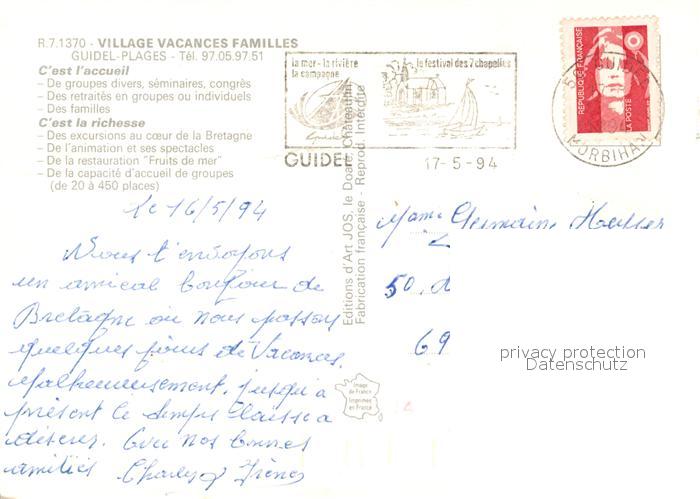 R.7.1370 - VILLAGE VACANCES FAMILLES
GUIDEL-PLAGES - Tél. 97.05.97.51
C'est l'accueil
– De groupes divers, séminaires, congrès
– Des retraités en groupes ou individuels
– Des familles
C'est la richesse
– Des excursions au cœur de la Bretagne
– De l'animation et ses spectacles
– De la restauration "Fruits de mer"
– De la capacité d'accueil de groupes
(de 20 à 450 places)
la mer - la rivière
la campagne
le festival des 7 chapelles
GUIDEL
17-5-94
REPUBLIQUE FRANÇAISE
LA POSTE
MORBIHAN
Editions d'Art JOS, le Doaré, Châteaulin
Fabrication française - Reprod. Interdite
Le 16/5/94
Nous t'envoyons
un amical bonjour de
Bretagne où nous passons
quelques jours de Vacances.
Malheureusement, jusqu'à
présent le temps laisse à
désirer. Avec nos bonnes
amitiés Charles &
Mame Germaine
50
69
Image
de France
Imprimée
en France
privacy protection
Datenschutz